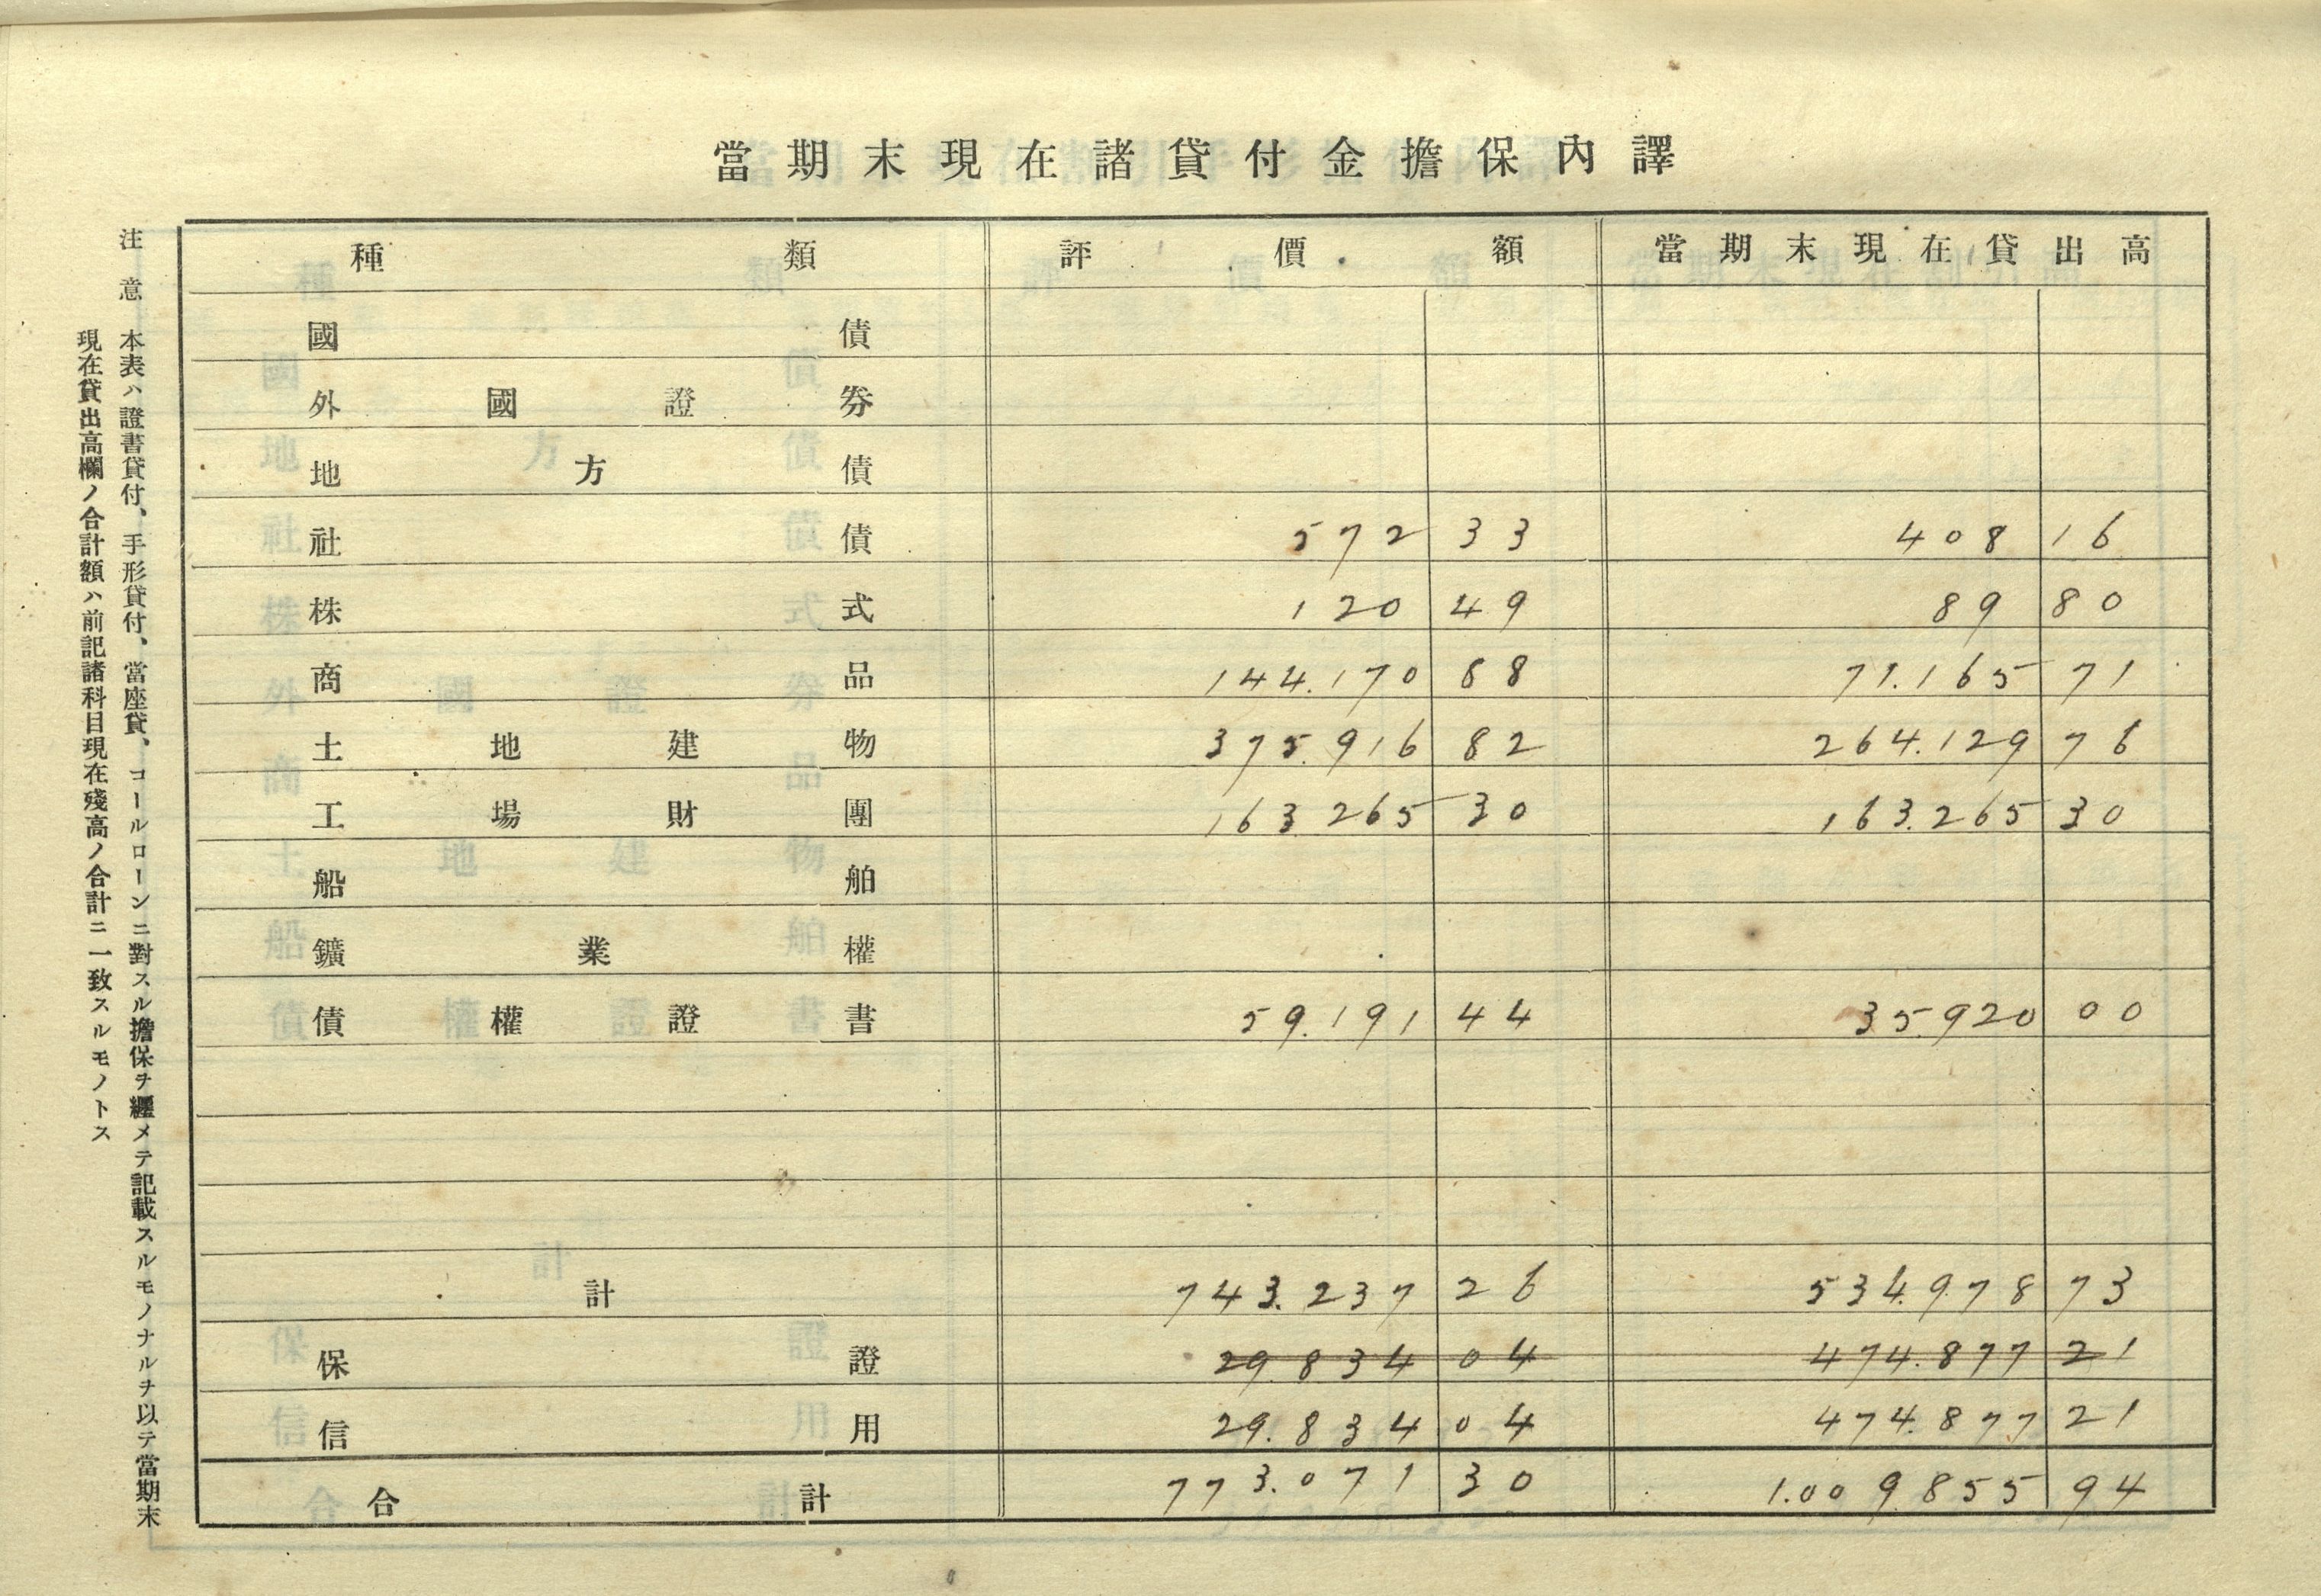 當期末現在諸貸付金擔保內譯
種類 評價額 當期末現在貸出高
國債
外國證券
地方債
社債 572 33 408 16
株式 120 49 89 80
商品 144.170 88 71.165 71
土地建物 375.916 82 264.129 76
工場財團 163.265 30 163.265 30
船舶
鑛業權
債權證書 59.191 44 35.920 00
計 743.237 26 534.978 73
保證 29.834 04 474.877 21
信用 29.834 04 474.877 21
合計 773.071 30 1.009.855 94
注意 本表ハ證書貸付、手形貸付、當座貸、コールローンニ對スル擔保ヲ纒メテ記載スルモノナルヲ以テ當期末
現在貸出高欄ノ合計額ハ前記諸科目現在殘高ノ合計ニ一致スルモノトス